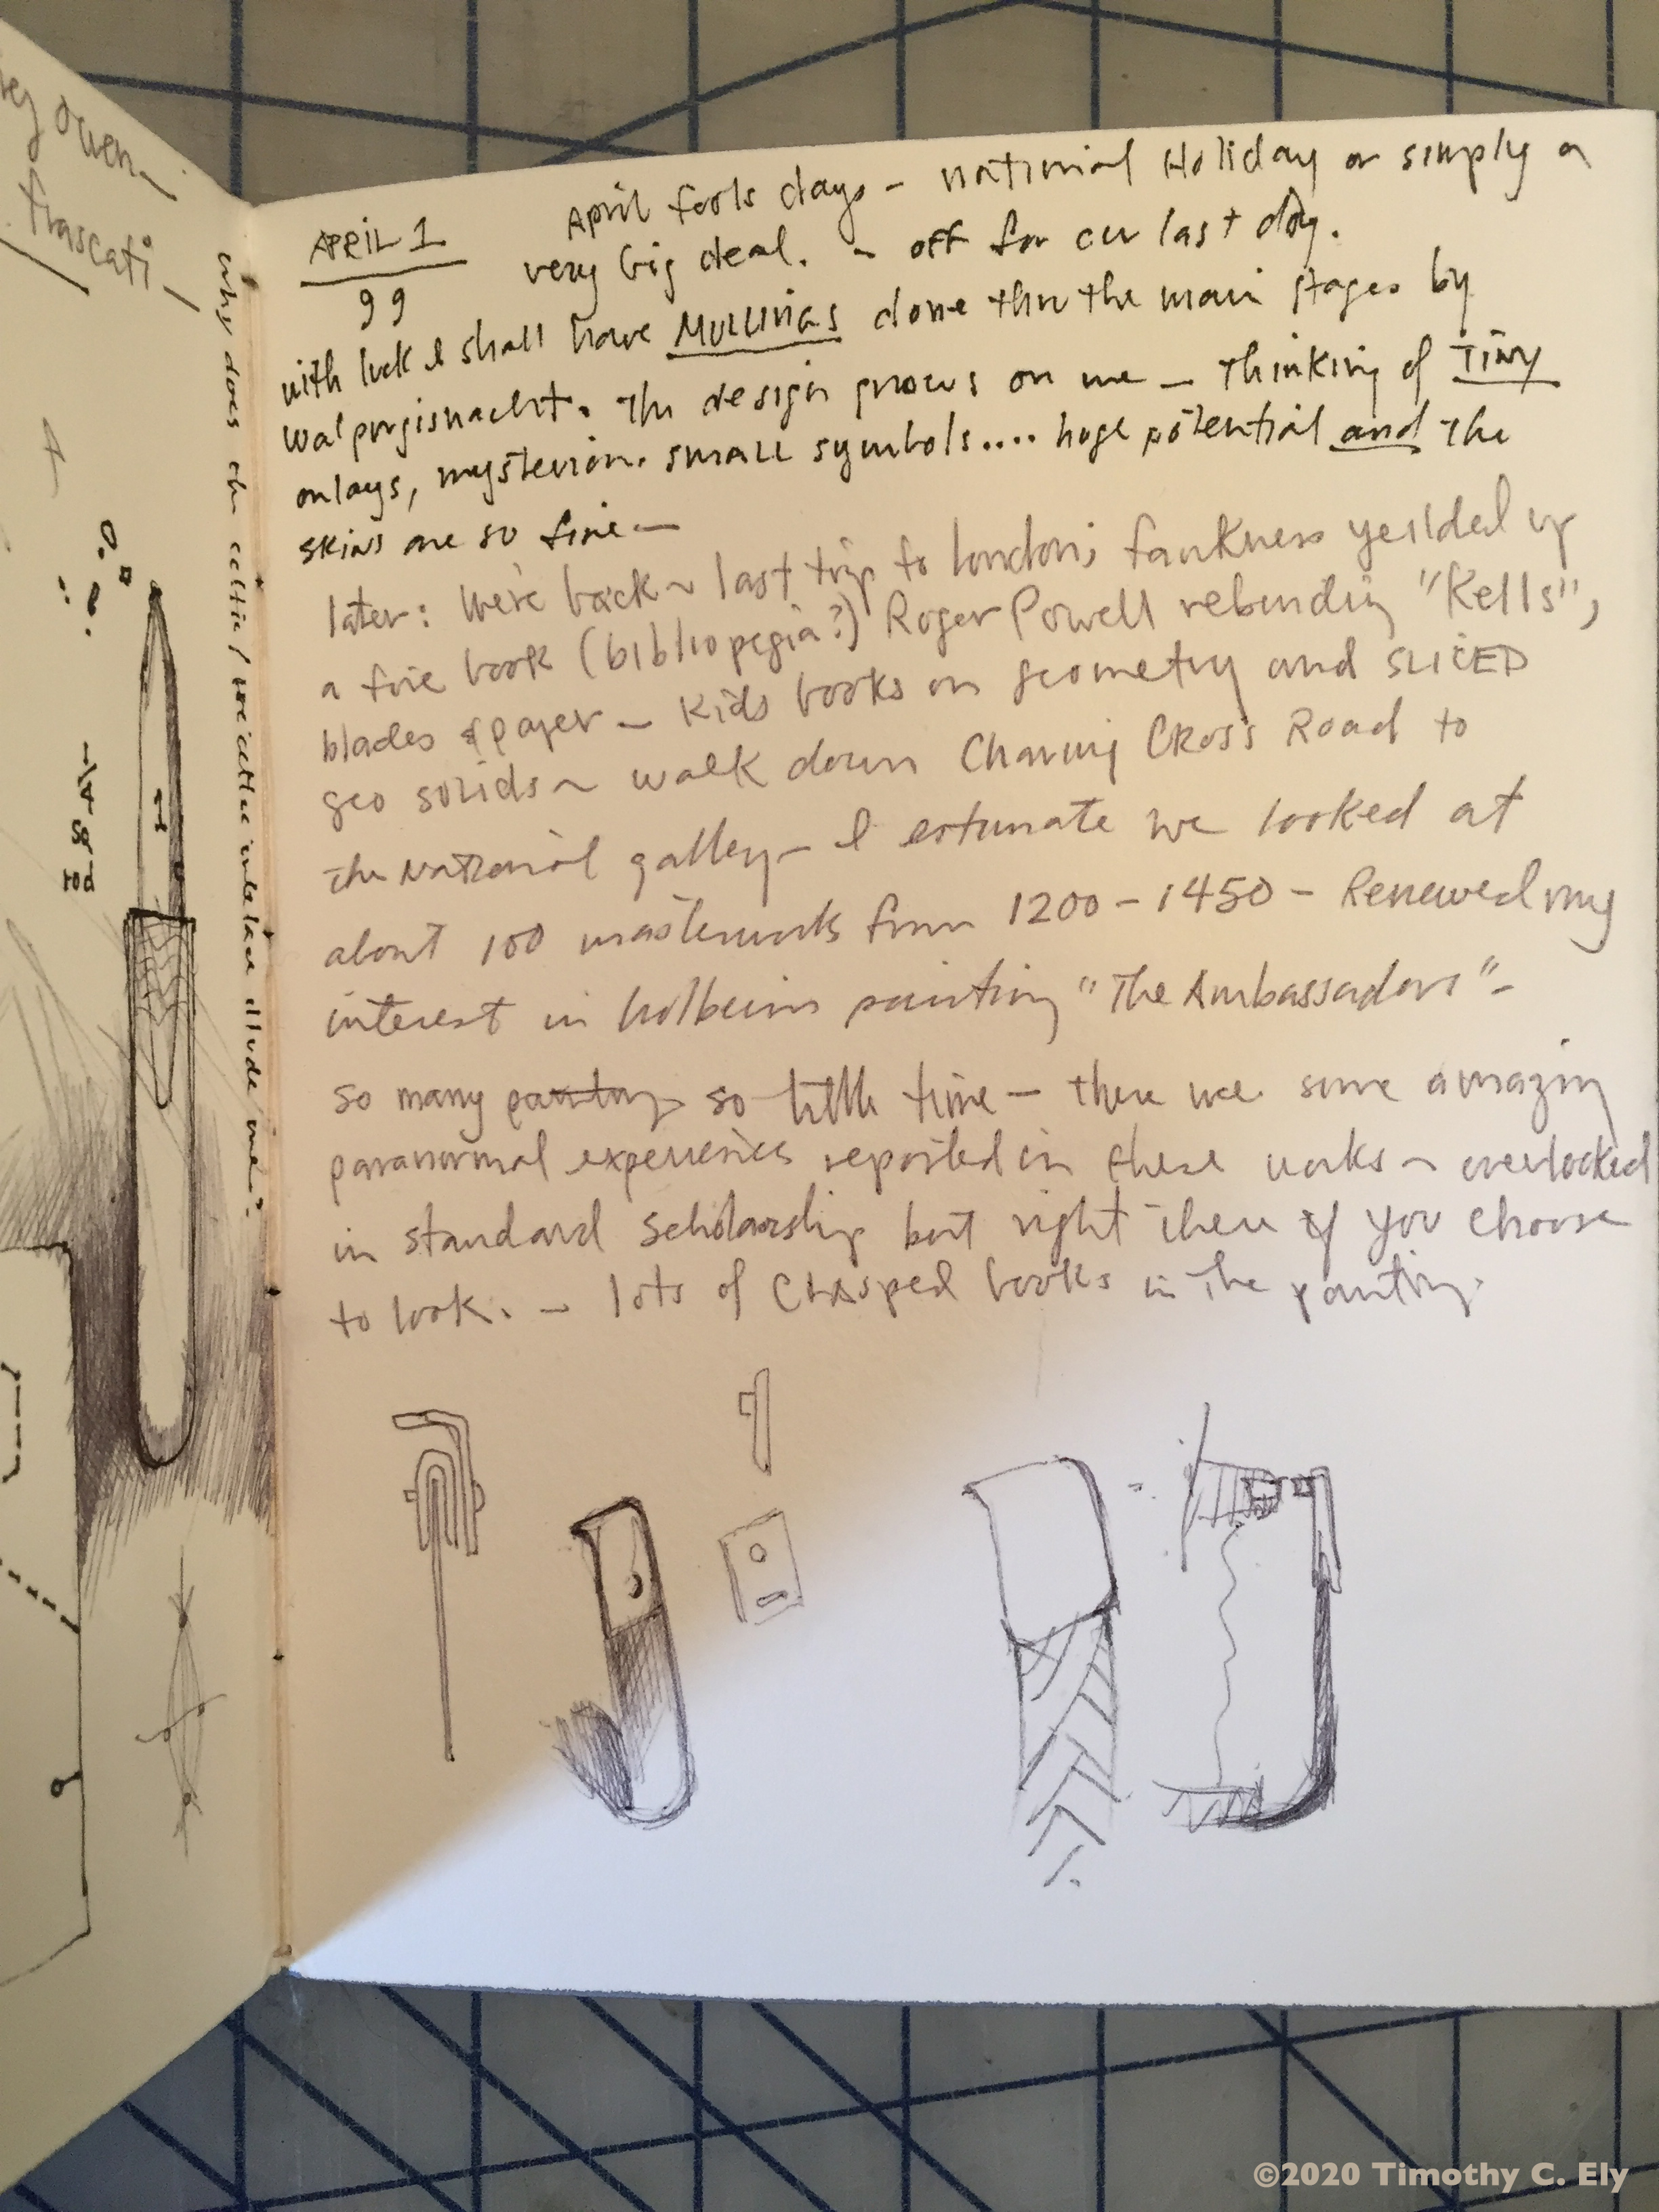 ey owen
frascati
why does the celtic / interlace illude me?
APRIL 1
99
April fools days – national Holiday or simply a
very big deal. – off for our last day.
with luck I shall have MULLINGS done thru the main stages by
walpurgisnacht. The design grows on me – Thinking of TINY
onlays, mysterion. small symbols.... huge potential and The
skins are so fine –
later: We're back – last trip to london; fankness yeilded up
a fine book (bibliopegia?) Roger Powell rebinding "Kells",
blades & paper – Kids books on geometry and SLICED
geo solids – walk down Charing Cross Road to
The National galley – I estimate we looked at
about 100 masterworks from 1200 – 1450 – Renewed my
interest in holbeins painting "The Ambassadors" –
so many painting so little time – there were some amazing
paranormal experiences reported in these works – overlooked
in standard scholarship but right there if you choose
to look. – lots of Clasped books in The painting.
©2020 Timothy C. Ely